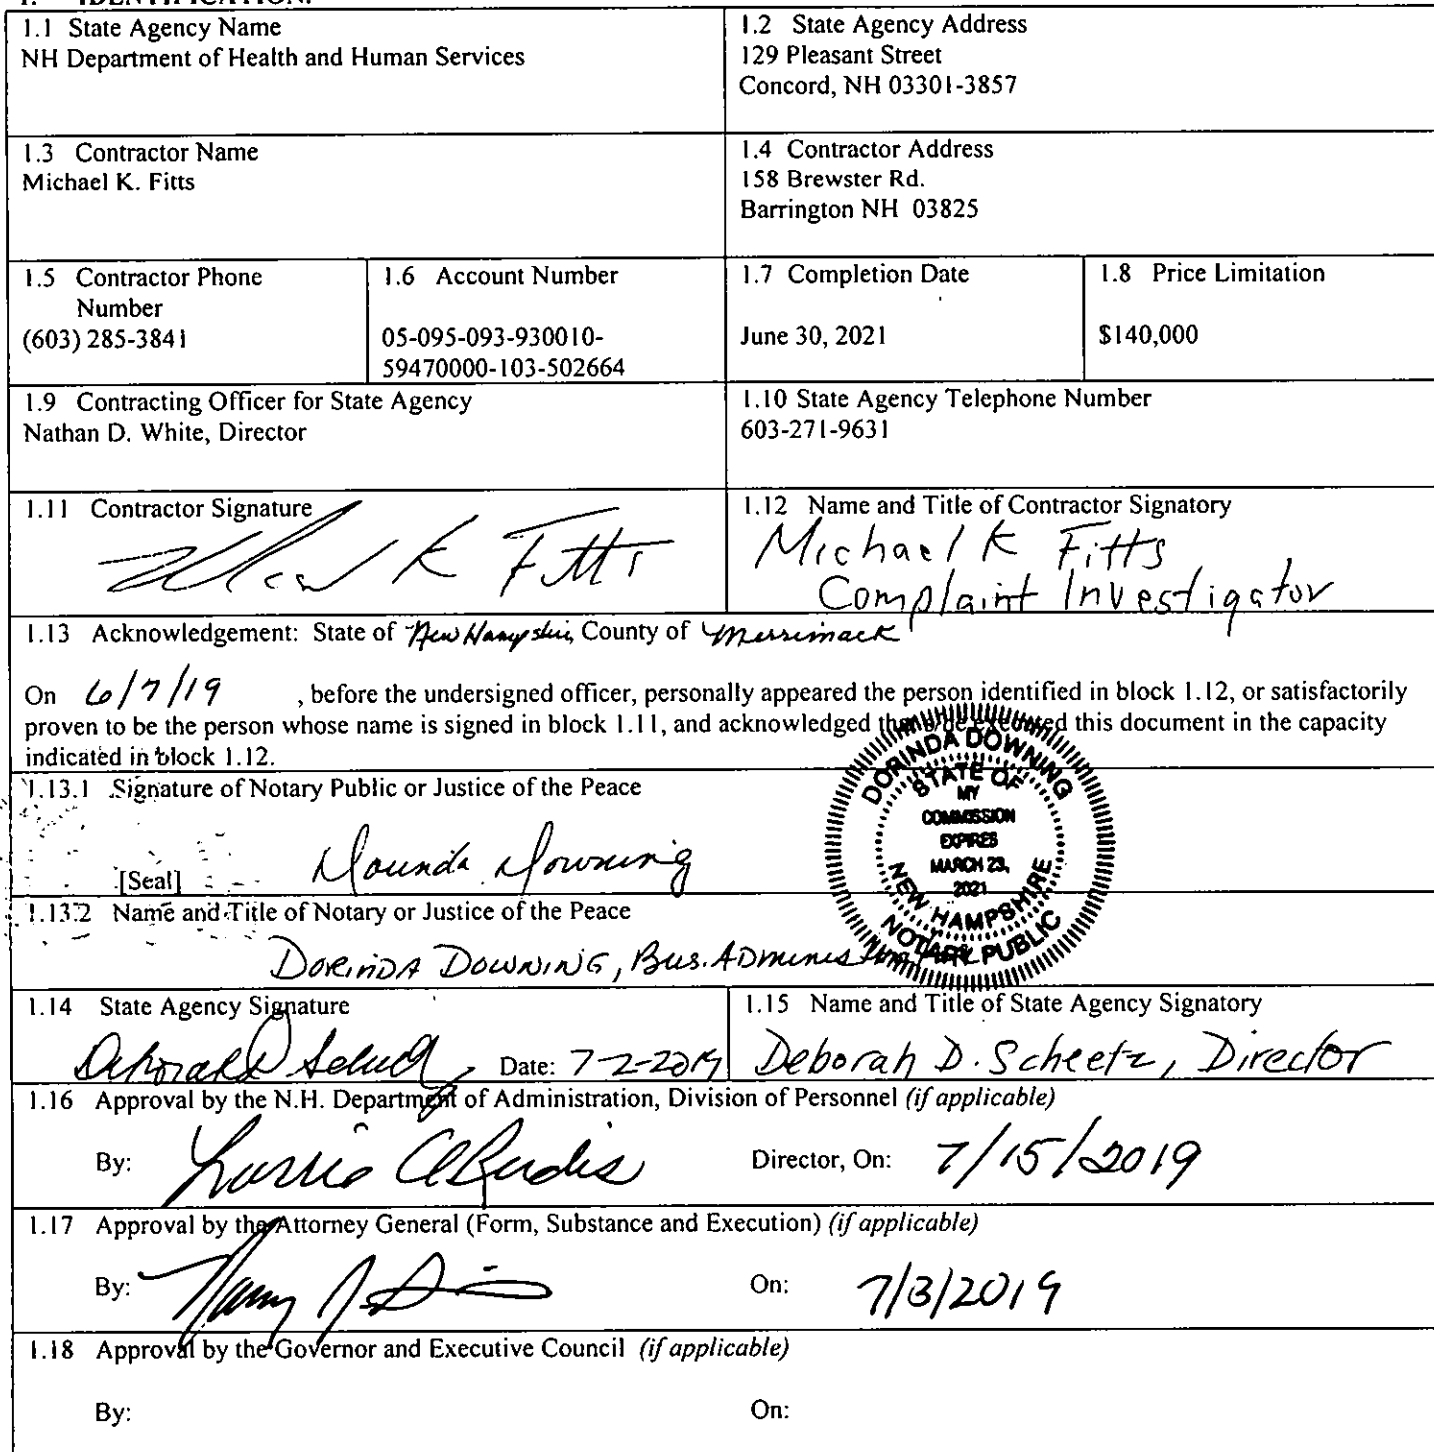 1. IDENTIFICATION.
1.1 State Agency Name
NH Department of Health and Human Services
1.2 State Agency Address
129 Pleasant Street
Concord, NH 03301-3857
1.3 Contractor Name
Michael K. Fitts
1.4 Contractor Address
158 Brewster Rd.
Barrington NH 03825
1.5 Contractor Phone
Number
(603) 285-3841
1.6 Account Number
05-095-093-930010-
59470000-103-502664
1.7 Completion Date
June 30, 2021
1.8 Price Limitation
$140,000
1.9 Contracting Officer for State Agency
Nathan D. White, Director
1.10 State Agency Telephone Number
603-271-9631
1.11 Contractor Signature
K Fitts
1.12 Name and Title of Contractor Signatory
Michael K Fitts
Complaint Investigator
1.13 Acknowledgement: State of New Hampshire, County of Merrimack
On 6/7/19 , before the undersigned officer, personally appeared the person identified in block 1.12, or satisfactorily
proven to be the person whose name is signed in block 1.11, and acknowledged that s/he executed this document in the capacity
indicated in block 1.12.
1.13.1 Signature of Notary Public or Justice of the Peace
[Seal] Dorinda Downing
DORINDA DOWNING
STATE OF
MY
COMMISSION
EXPIRES
MARCH 23,
2021
NEW HAMPSHIRE
NOTARY PUBLIC
1.13.2 Name and Title of Notary or Justice of the Peace
DORINDA DOWNING, Bus. ADminis
1.14 State Agency Signature
Deborah D Date: 7-2-2019
1.15 Name and Title of State Agency Signatory
Deborah D. Scheetz, Director
1.16 Approval by the N.H. Department of Administration, Division of Personnel (if applicable)
By: Director, On: 7/15/2019
1.17 Approval by the Attorney General (Form, Substance and Execution) (if applicable)
By: On: 7/3/2019
1.18 Approval by the Governor and Executive Council (if applicable)
By: On: